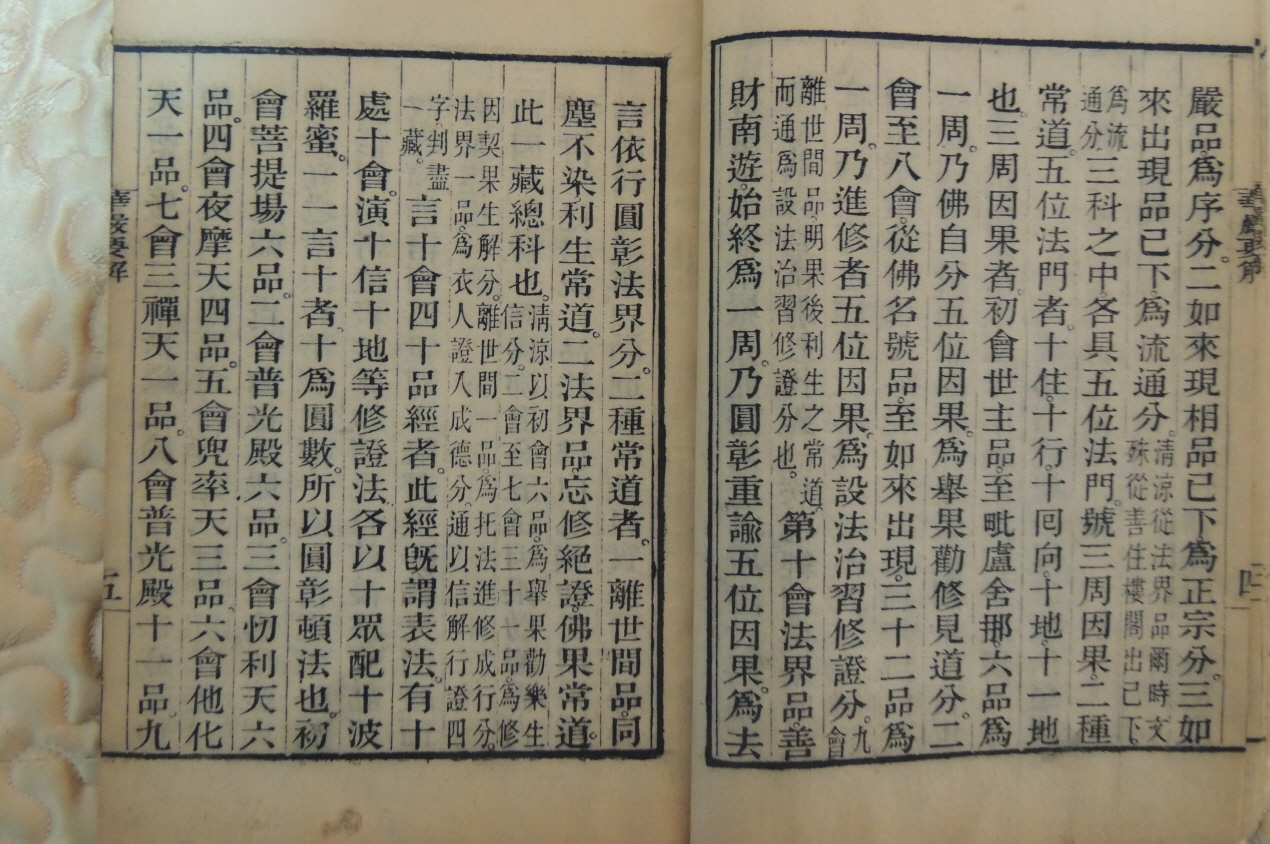 嚴品爲序分。二如來現相品已下爲正宗分。三如
來出現品已下爲流通分。清涼從法界品爾時文
殊從善住樓閣出已下。
爲流
通分。三科之中各具五位法門。號三周因果。二種
常道。五位法門者。十住。十行。十囘向。十地。十一地
也。三周因果者。初會世主品。至毗盧舍那。六品爲
一周。乃佛自分五位因果。爲舉果勸修見道分。二
會至八會。從佛名號品。至如來出現。三十二品爲
一周。乃進修者五位因果。爲設法治習修證分。九
會
離世間品。明果後利生之常道。
而通爲設法治習修證分也。
第十會法界品。善
財南遊。始終爲一周。乃圓彰重諭五位因果。爲去
華嚴要解
四
言依行圓彰法界分。二種常道者。一離世間品。同
塵不染利生常道。二法界品。忘修絕證。佛果常道。
此一藏總科也。清涼以初會六品。爲舉果勸樂生
信分。二會至七會三十一品。爲修
因契果生解分。離世間一品。爲托法進修成行分。
法界一品。爲依人證入成德分。通以信解行證四
字判盡
一藏。
言十會四十品經者。此經旣謂表法。有十
處十會。演十信十地等修證法。各以十眾配十波
羅蜜。一一言十者。十爲圓數。所以圓彰頓法也。初
會菩提場六品。二會普光殿六品。三會忉利天六
品。四會夜摩天四品。五會兜率天三品。六會他化
天一品。七會三禪天一品。八會普光殿十一品。九
華嚴要解
五